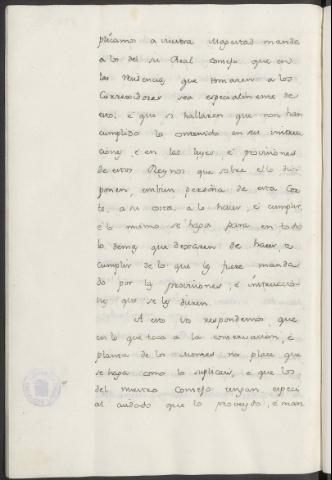 plicamos a vuestra Magestad mande
a los del su Real consejo, que en
las residencias, que tomaren a los
Corregidores sea especialmente de
esto: é que si hallaren que non han
cumplido lo contenido en sus instruc
ciones, é en las leyes, é provisiones
de estos Reynos que sobre ello dis
ponen, embien persona de esta Cor
te, a su costa, a lo hacer, é cumplir,
é lo mismo se haga para en todo
lo demas que dexaren de hacer, e
cumplir de lo que les fuere manda
do por las provisiones, é instruccio
nes que se les dieren.
A esto vos respondemos, que
en lo que toca a la conservacion, é
planta de los montes nos place que
se haga como lo suplicais, é que los
del nuestro Consejo tengan especi
al cuidado que lo proveydo, é man